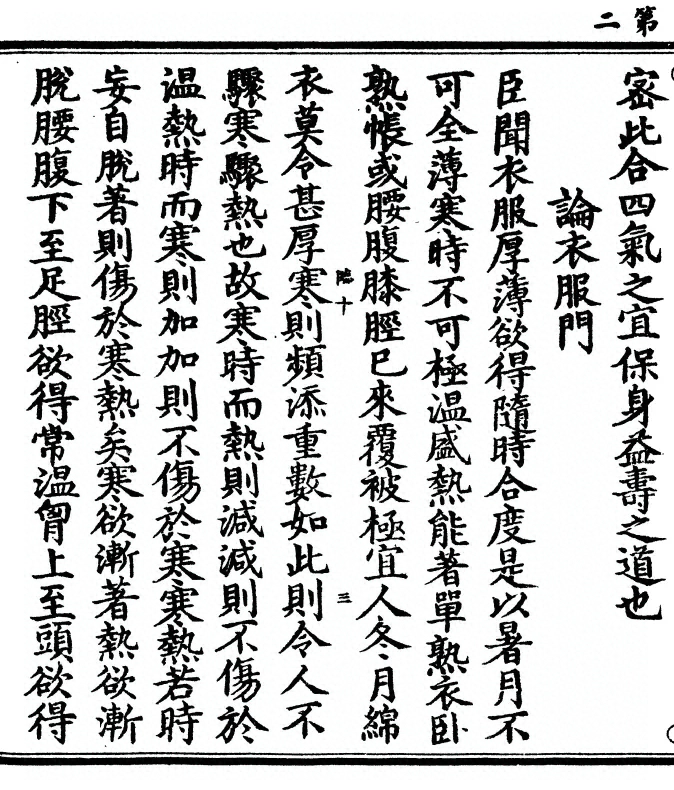 第二
密此合四氣之宜保身益壽之道也
論衣服門
臣聞衣服厚薄欲得隨時合度是以暑月不
可全薄寒時不可極温盛熱能著單熟衣卧
熟帳或腰腹膝脛已來覆被極宜人冬月綿
臨十
三
衣莫令甚厚寒則頻添重數如此則令人不
驟寒驟熱也故寒時而熱則減減則不傷於
温熱時而寒則加加則不傷於寒寒熱若時
妄自脫著則傷於寒熱矣寒欲漸著熱欲漸
脫腰腹下至足脛欲得常温胷上至頭欲得